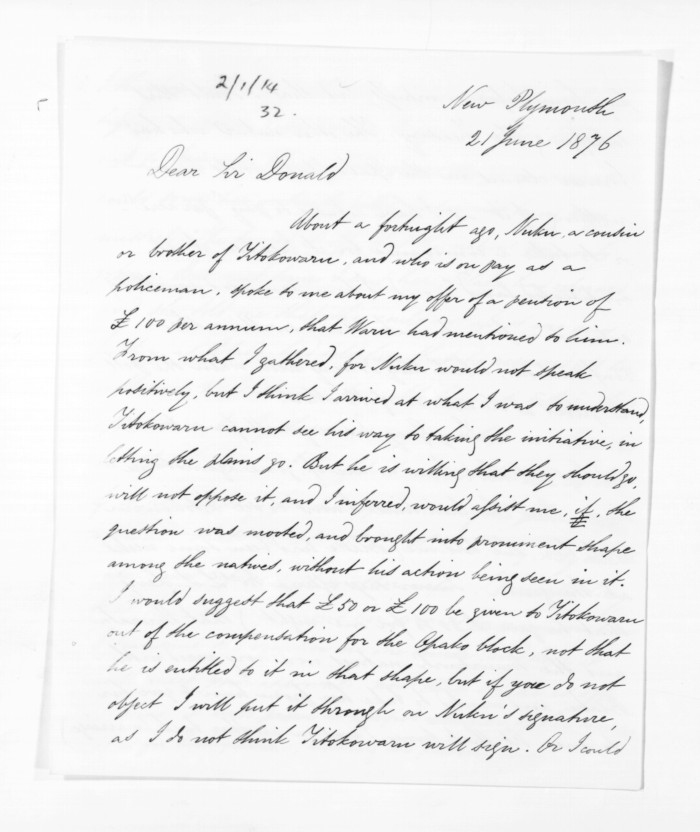 2/1/14
32.
New Plymouth
21 June 1876
Dear Sir Donald
About a fortnight ago, Nuku, a cousin
or brother of Titokowaru, and who is on pay as a
policeman, spoke to me about my offer of a pension of
£100 per annum, that Waru had mentioned to him.
From what I gathered, for Nuku would not speak
positively, but I think I arrived at what I was to understand,
Titokowaru cannot see his way to taking the initiative, in
letting the plains go. But he is willing that they should go,
will not oppose it, and I inferred, would assist me, if, the
question was mooted, and brought into prominent shape
among the natives, without his action being seen in it.
I would suggest that £50 or £100 be given to Titokowaru
out of the compensation for the Opako block, not that
he is entitled to it in that shape, but if you do not
object I will put it through on Nuku's signature,
as I do not think Titokowaru will sign. Or I could